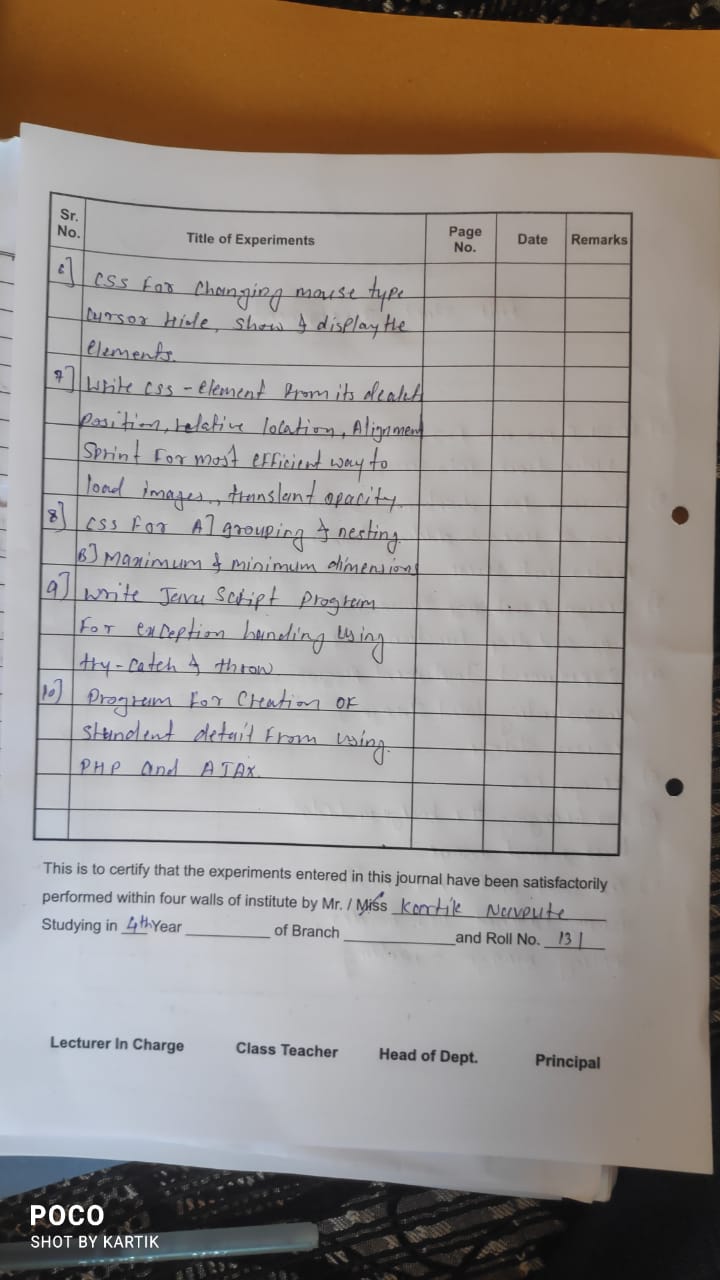 Sr. No.
Title of Experiments
Page No.
Date
Remarks
6] CSS For Changing mouse type
Cursor Hide, Show & display the
elements.
7] Write css - element from its
position, relative location, Alignment
Sprint For most efficient way to
load images, opacity.
8] CSS For A] grouping & nesting.
B] Maximum & minimum dimensions
9] Write Java Script Program
For exception handling Using
try-catch & throw
10] Program For Creation OF
detail From using.
PHP and AJAX.
This is to certify that the experiments entered in this journal have been satisfactorily
performed within four walls of institute by Mr. / Miss Kartik
Studying in 4th Year __________ of Branch __________ and Roll No. 131
Lecturer In Charge
Class Teacher
Head of Dept.
Principal
POCO
SHOT BY KARTIK